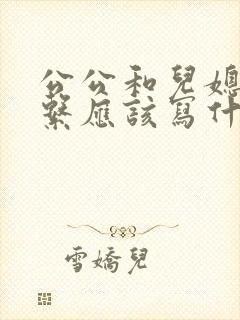 公公和兒媳
繫應該寫什
雪嬌兒